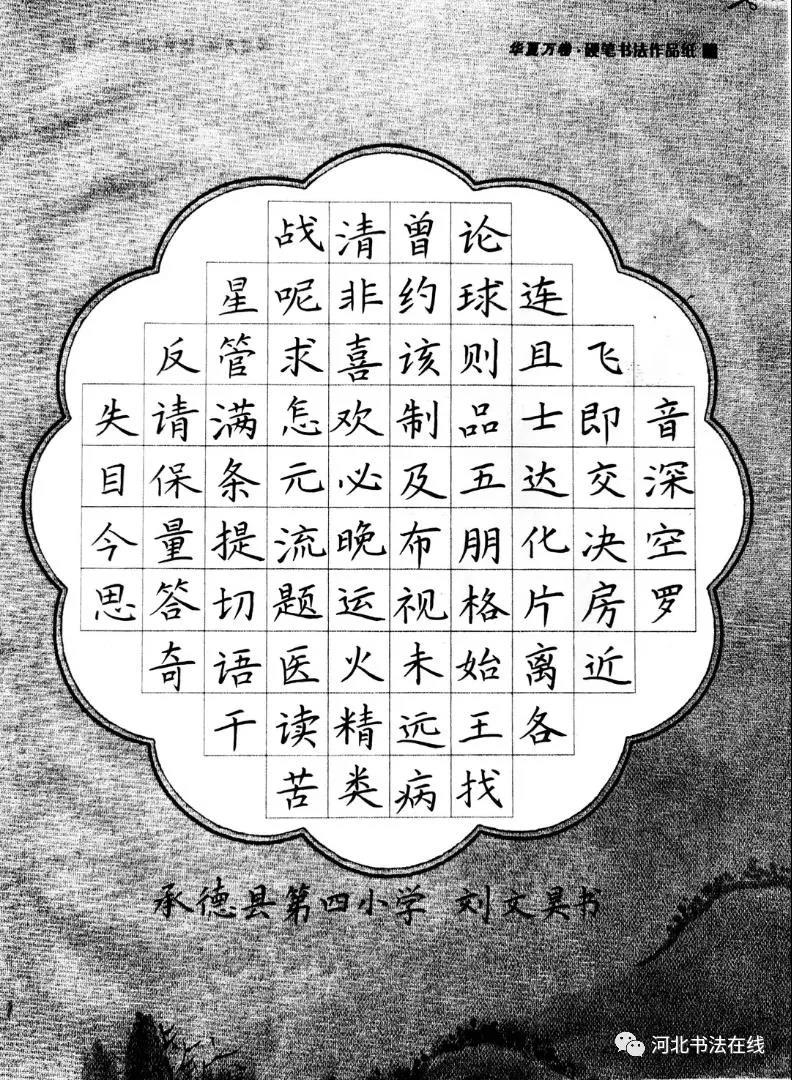 华夏万卷·硬笔书法作品纸
战清曾论
星呢非约球连
反管求喜该则且飞
失请满怎欢制品士即音
目保条元必及五达交深
今量提流晚布朋化决空
思答切题运视格片房罗
奇语医火未始离近
干读精远王各
苦类病找
承德县第四小学 刘文昊书
河北书法在线